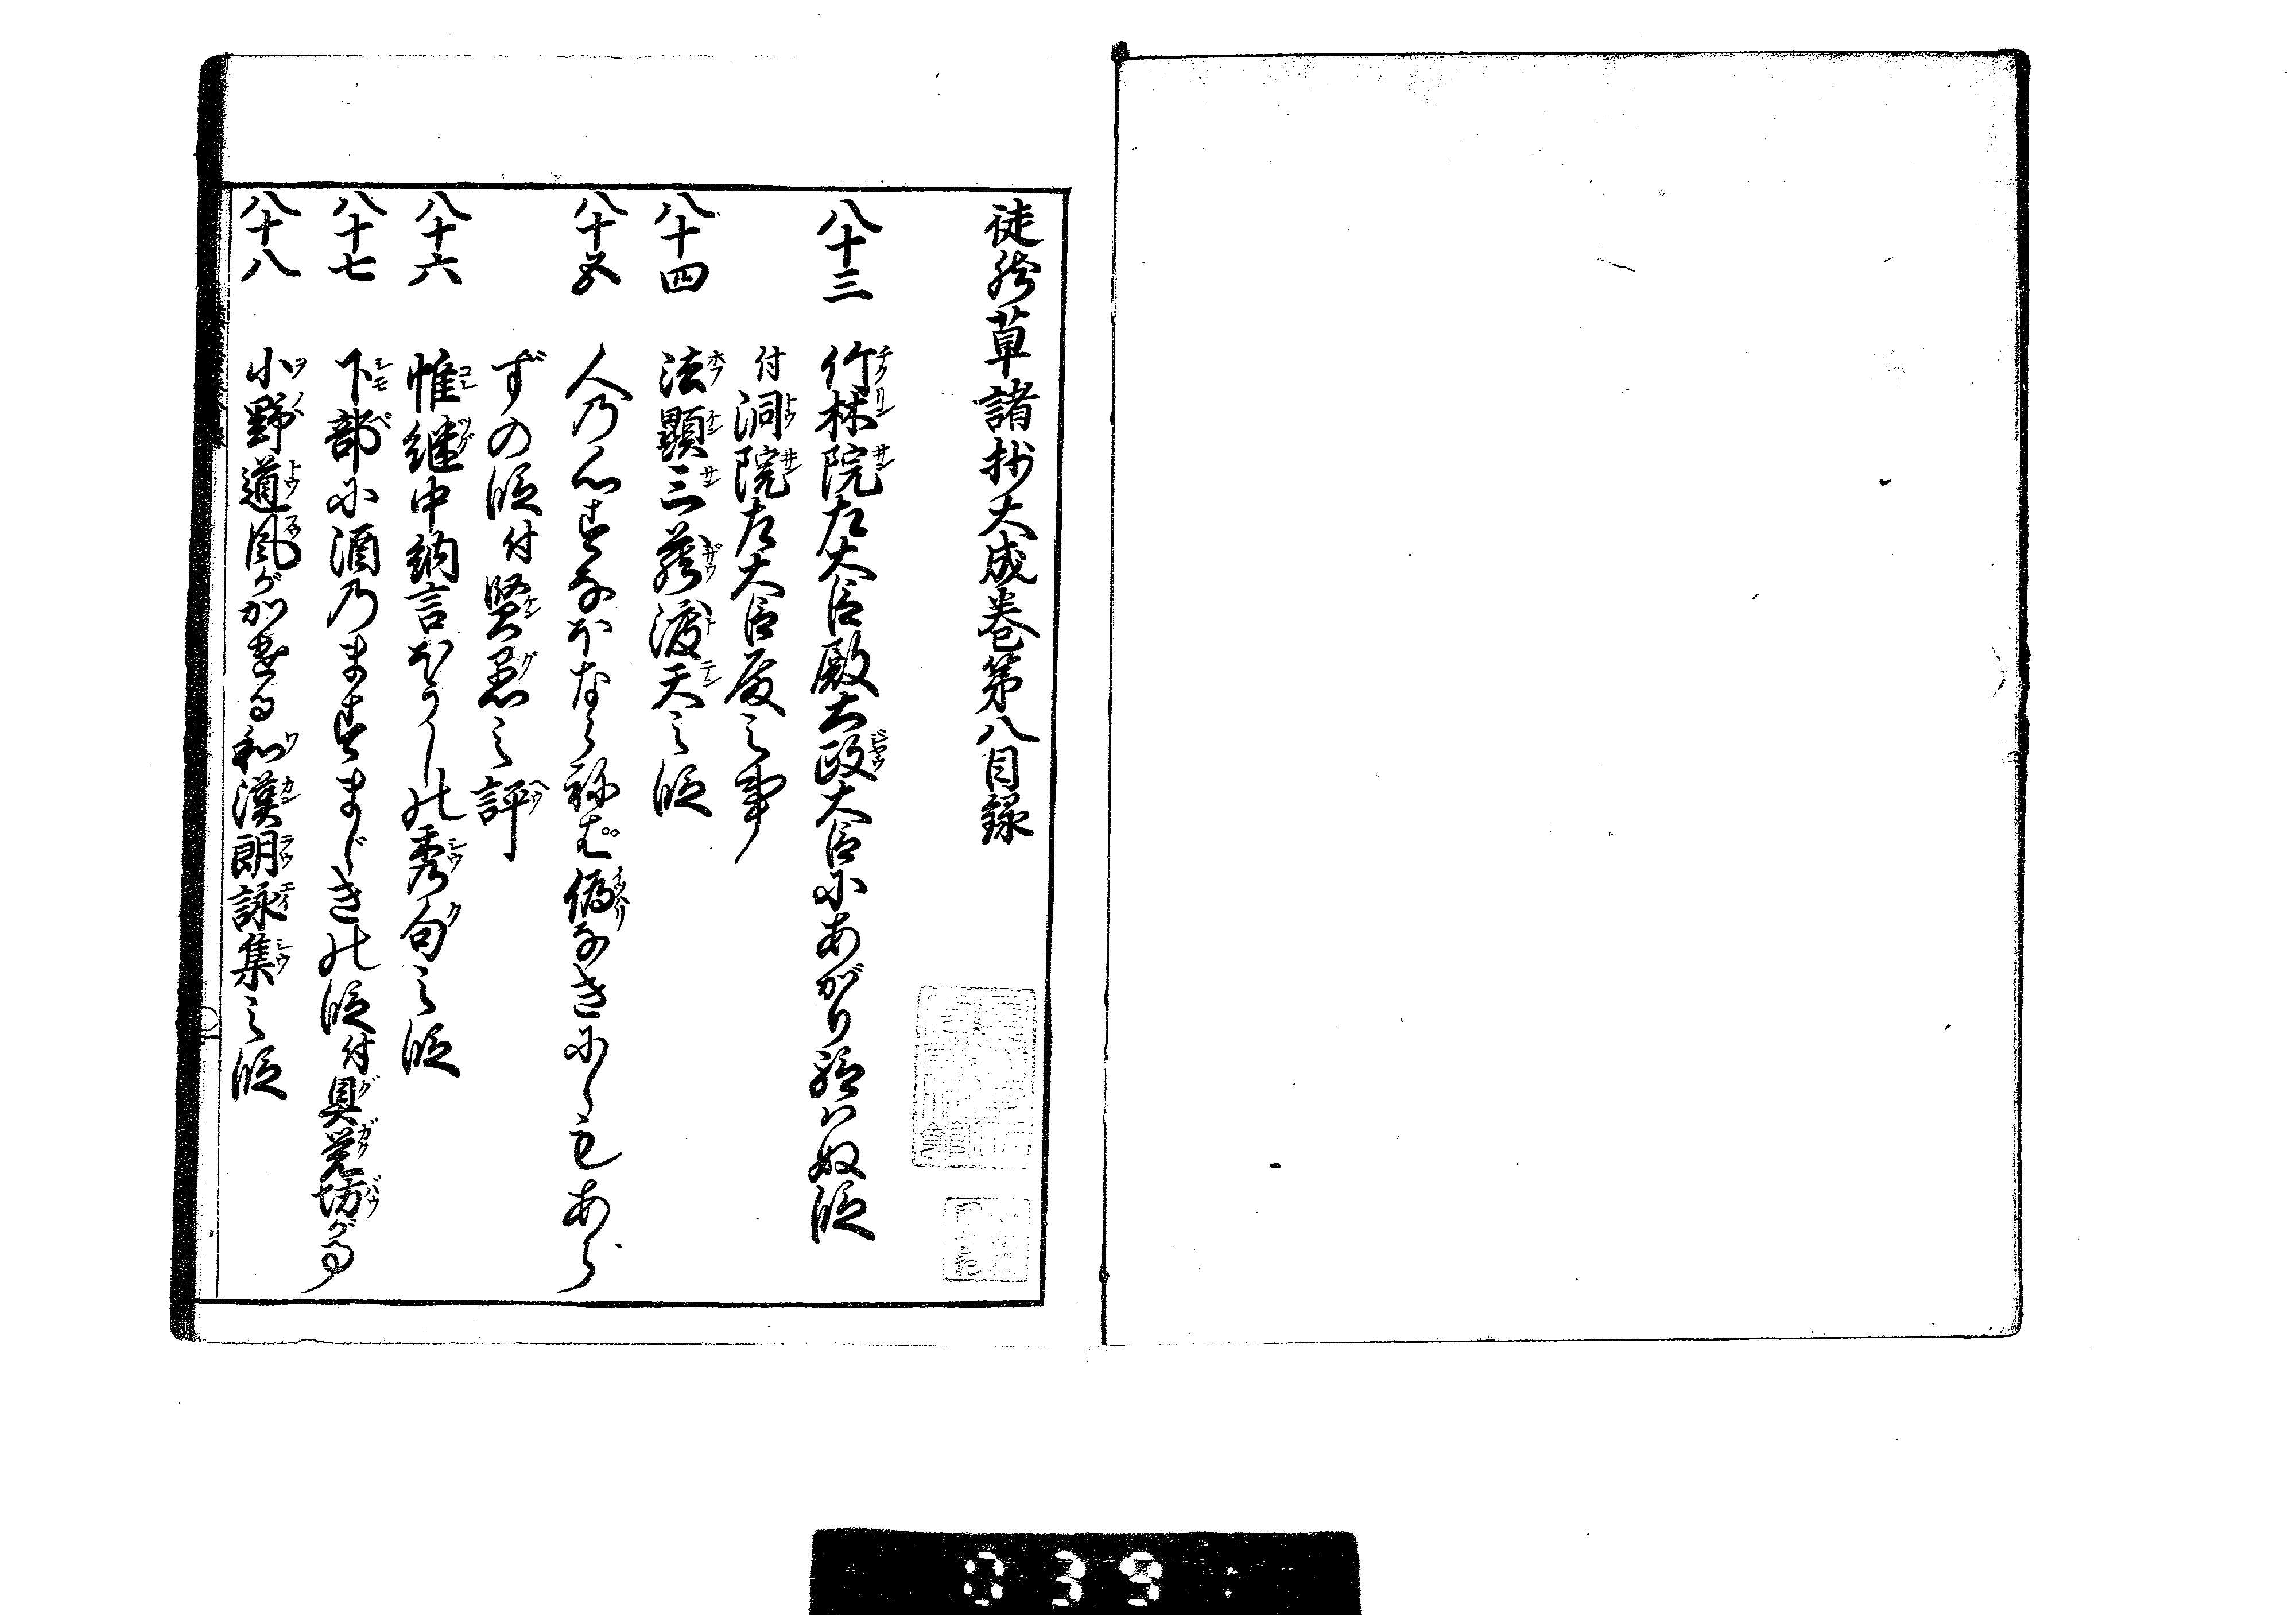 徒然草諸抄大成巻第八目録
八十三 竹林院左大臣殿太政大臣にあがり給ハぬ段
付洞院左大臣殿之事
八十四 法顕三蔵渡天之段
八十五 人の心すなほならねば偽なきにしもあら
ずの段付賢愚之評
八十六 惟継中納言ほうしの秀句之段
八十七 下部に酒のますまじきの段付具覚坊がる
八十八 小野道風がかける和漢朗詠集之段
039